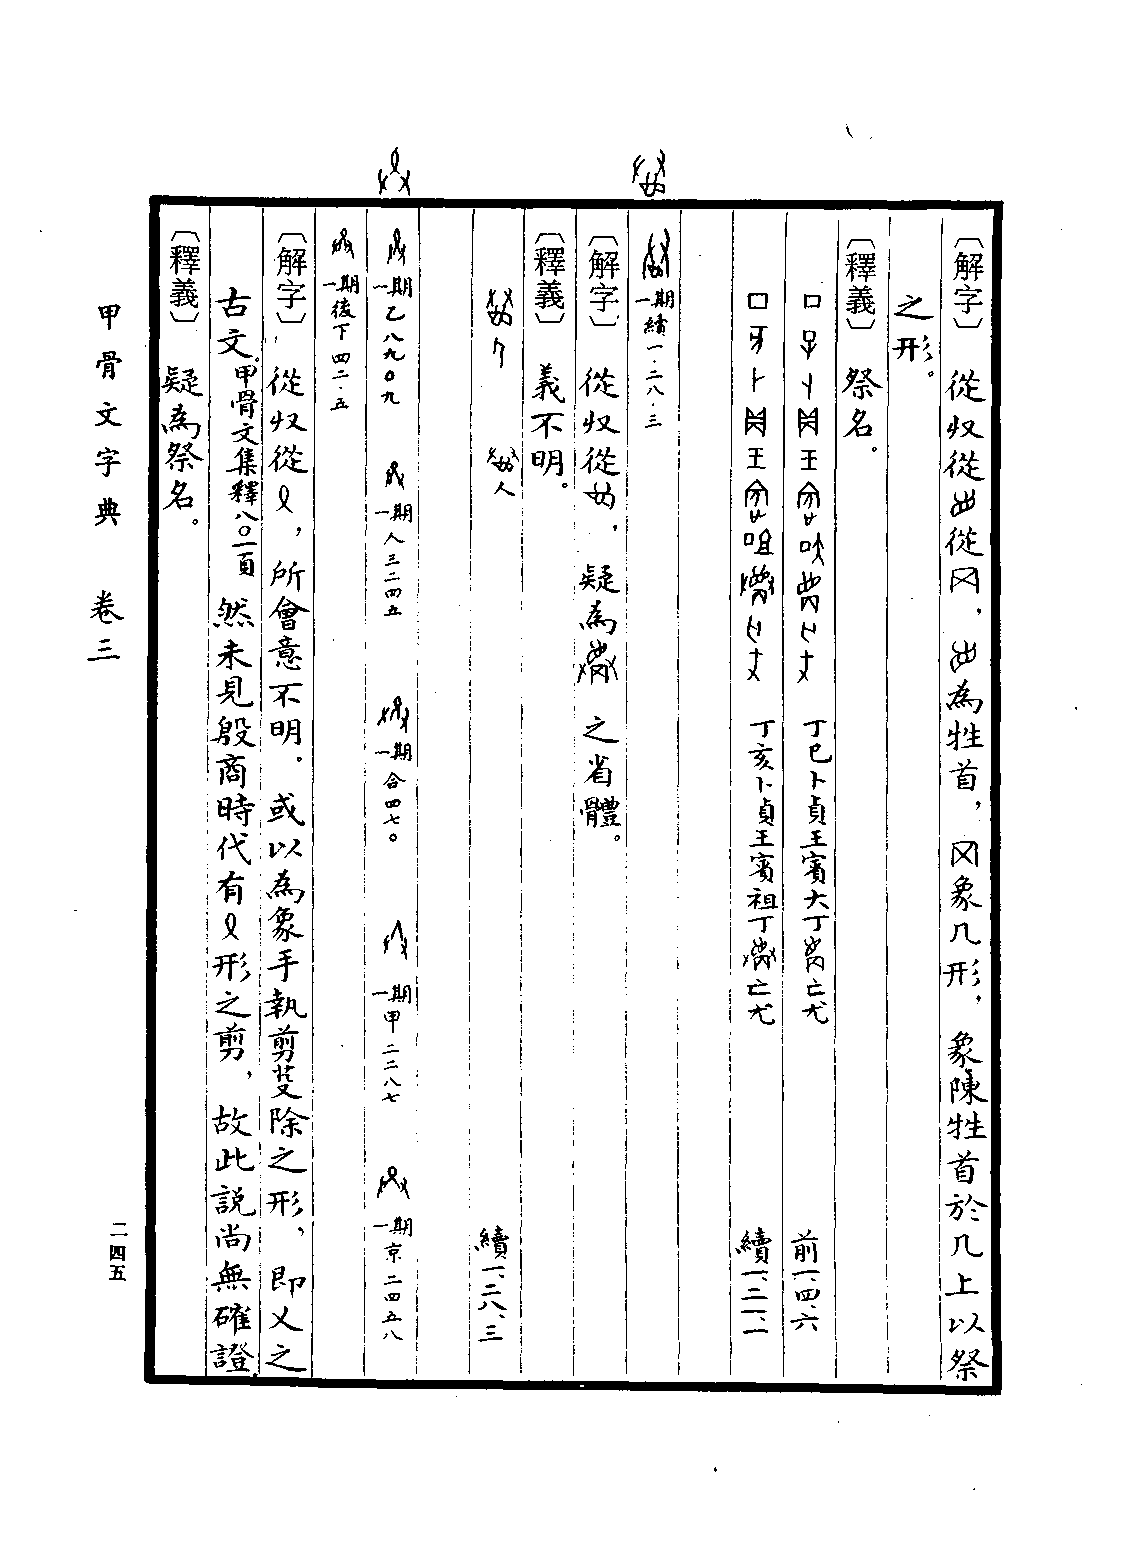 〔解字〕 從収從 從 ， 為牲首， 象几形， 象陳牲首於几上以祭
之形。
〔釋義〕 祭名。
丁巳卜貞王賓大丁 亡尤 前一、四、六
丁亥卜貞王賓祖丁 亡尤 續一、二一、一
一期 續一．二八．三
〔解字〕 從収從 ，疑為 之省體。
〔釋義〕 義不明。
續一、二八、三
一期 乙八九〇九 一期 人三二四五 一期 合四七〇 一期 甲二二八七 一期 京二四五八
一期 後下四二．五
〔解字〕 從収從 ，所會意不明．或以為象手執剪芟除之形，即乂之
古文。甲骨文集釋八〇一頁 然未見殷商時代有 形之剪，故此説尚無確證
〔釋義〕 疑為祭名。
甲骨文字典 卷三
二四五